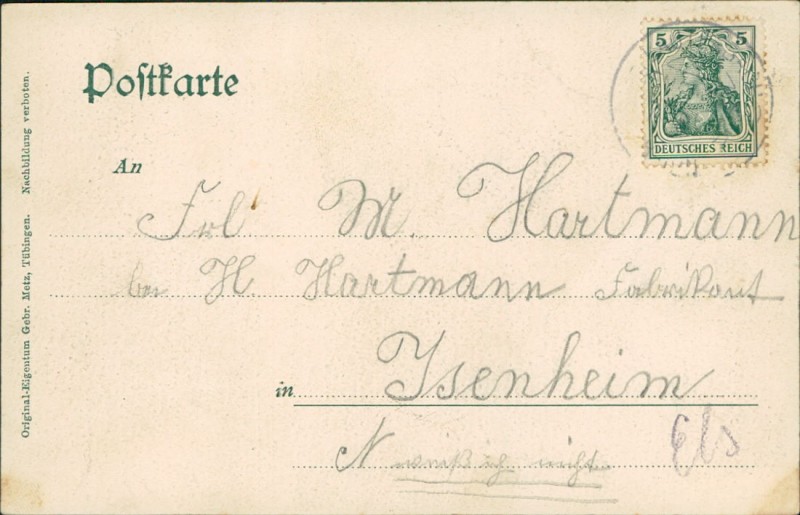 5 5
DEUTSCHES REICH
Postkarte
An
Frl M. Hartmann
bei H. Hartmann Fabrikant
in Isenheim
Els
N weiß ich nicht
Original-Eigentum Gebr. Metz, Tübingen. Nachbildung verboten.